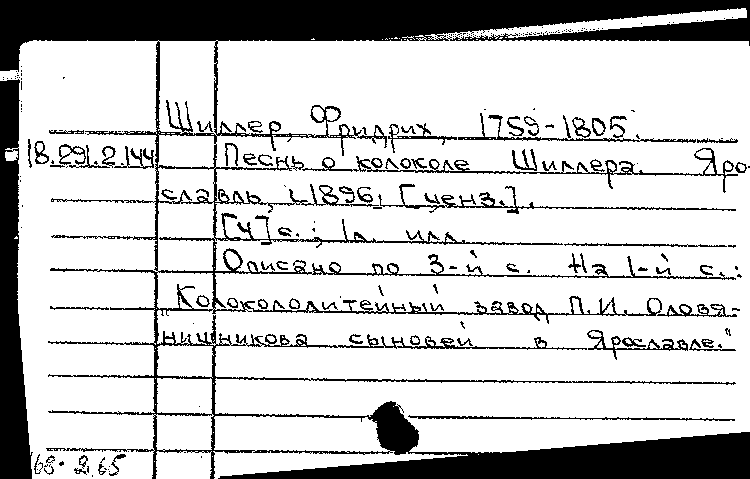 Шиллер, Фридрих, 1759-1805.
18.291.2.144 Песнь о колоколе Шиллера. Яро-
славль, 1896, [ценз.].
[4] с.; 1 л. илл.
Описано по 3-й с. На 1-й с.:
"Колокололитейный завод П.И. Оловя-
нишникова сыновей в Ярославле."
68. 2.65